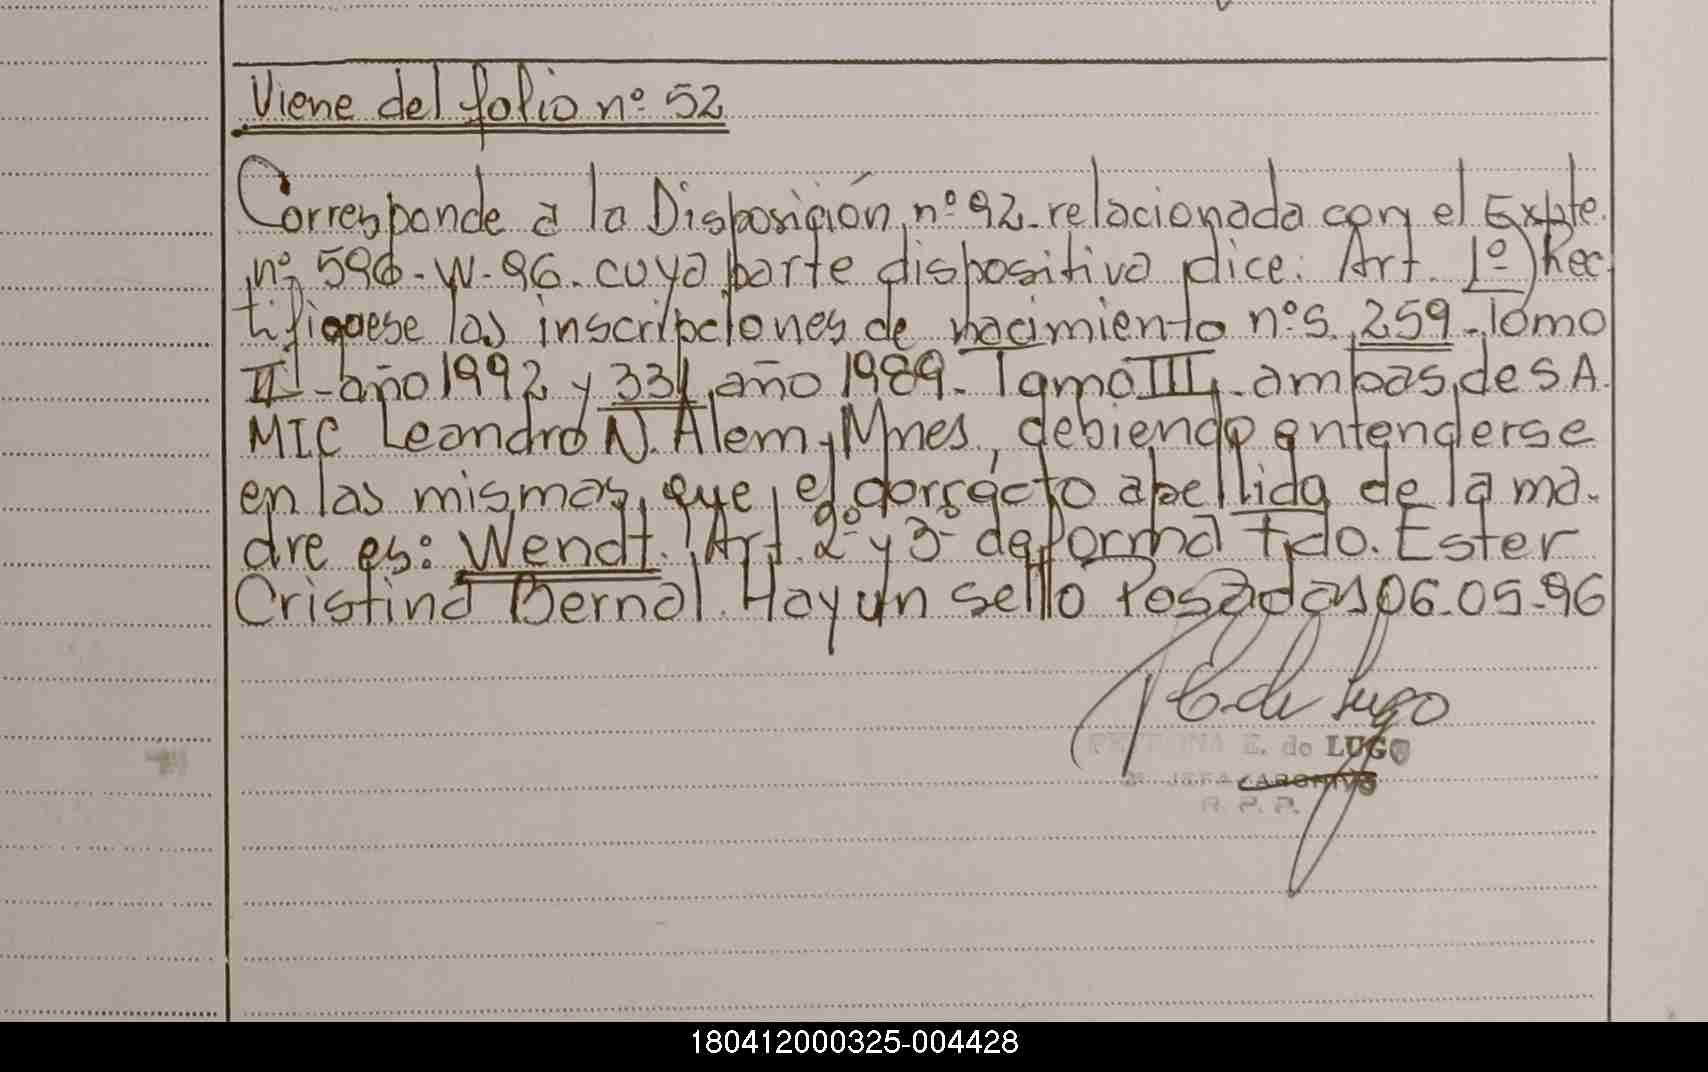 Viene del folio nº 52
Corresponde a la Disposición nº 92. relacionada con el Expte.
nº 590-W-96. cuya parte dispositiva dice: Art. 1º) Rec
tifiquese las inscripciones de nacimiento nºs 259 - Tomo
II - año 1992 y 331 año 1989 - Tomo III - ambas de S.A.
MIC Leandro N. Alem, Mnes, debiendo entenderse
en las mismas, que el correcto apellido de la ma-
dre es: Wendt. Art. 2º y 3º de forma Fdo. Ester
Cristina Bernal. Hay un sello Posadas 06-05-96
E. de LUGO
JEFA ARCHIVO
R. P. P.
180412000325-004428